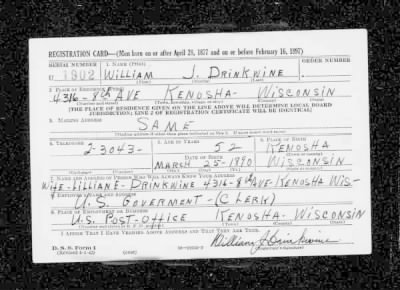 REGISTRATION CARD—(Men born on or after April 28, 1877 and on or before February 16, 1897)
SERIAL NUMBER 1. NAME (Print) ORDER NUMBER
U 1902 WILLIAM J. DRINKWINE
(First) (Middle) (Last)
2. PLACE OF RESIDENCE (Print)
4316-8th AVE KENOSHA- WISCONSIN
(Number and street) (Town, township, village, or city) (County) (State)
[THE PLACE OF RESIDENCE GIVEN ON THE LINE ABOVE WILL DETERMINE LOCAL BOARD
JURISDICTION; LINE 2 OF REGISTRATION CERTIFICATE WILL BE IDENTICAL]
3. MAILING ADDRESS
SAME
(Mailing address if other than place indicated on line 2. If same insert word same)
4. TELEPHONE 5. AGE IN YEARS 6. PLACE OF BIRTH
2-3043- 52 KENOSHA
DATE OF BIRTH (Town or county)
MARCH 25-1890 WISCONSIN
(Exchange) (Number) (Mo.) (Day) (Yr.) (State or country)
7. NAME AND ADDRESS OF PERSON WHO WILL ALWAYS KNOW YOUR ADDRESS
WIFE-LILLIAN E-DRINKWINE 4316-8th AVE-KENOSHA WIS-
8. EMPLOYER'S NAME AND ADDRESS
U.S. GOVERMENT-(CLERK)
9. PLACE OF EMPLOYMENT OR BUSINESS
U.S. POST-OFFICE KENOSHA- WISCONSIN
(Number and street or R. F. D. number) (Town) (County) (State)
I AFFIRM THAT I HAVE VERIFIED ABOVE ANSWERS AND THAT THEY ARE TRUE.
D. S. S. Form 1 William J Drinkwine
(Revised 4-1-42) (over) (Registrant's signature)